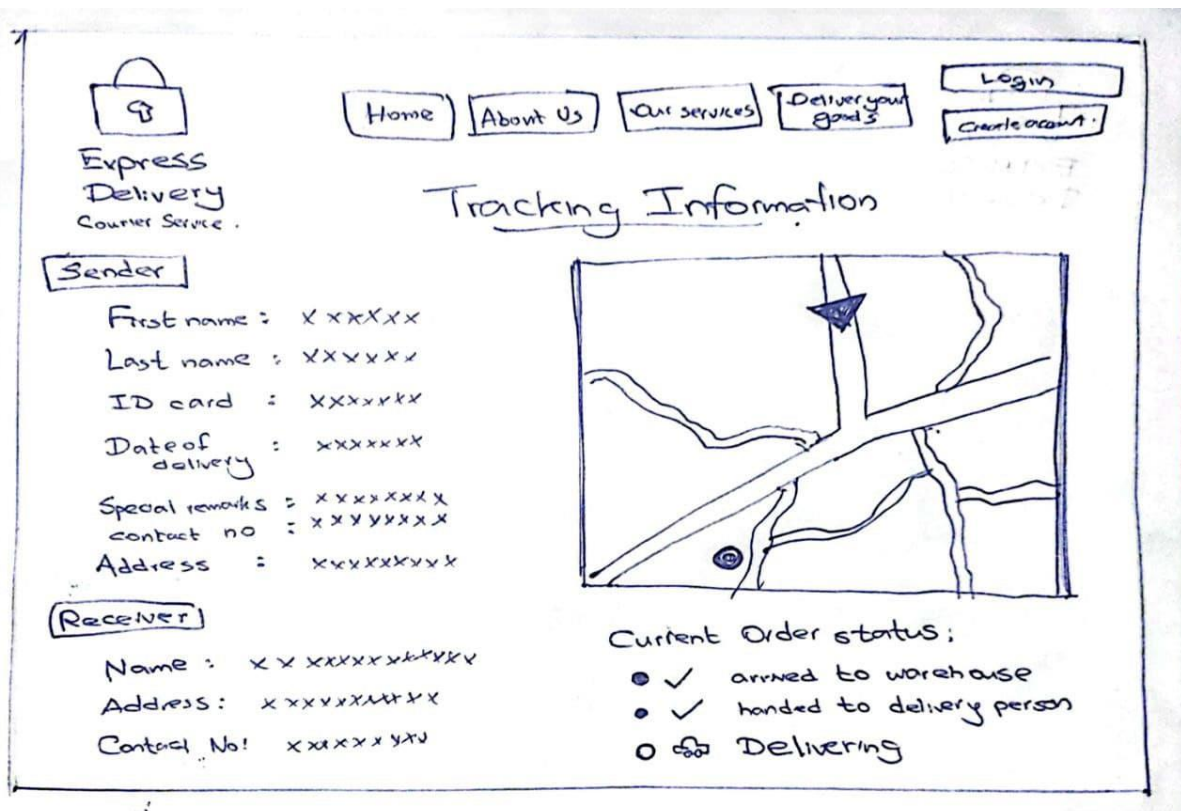 Express
Delivery
Courier Service.
Home
About Us
Our services
Deliver your
goods
Login
Create acount.
Tracking Information
Sender
First name : xxxxxx
Last name : xxxxxx
ID card : xxxxxxx
Date of
delivery : xxxxxxx
Special remarks : xxxxxxxx
contact no : xxxxxxxx
Address : xxxxxxxxx
Receiver
Name : xxxxxxxxxxxxx
Address : xxxxxxxxxxx
Contact No! xxxxxxxxx
Current Order status:
arrived to warehouse
handed to delivery person
Delivering